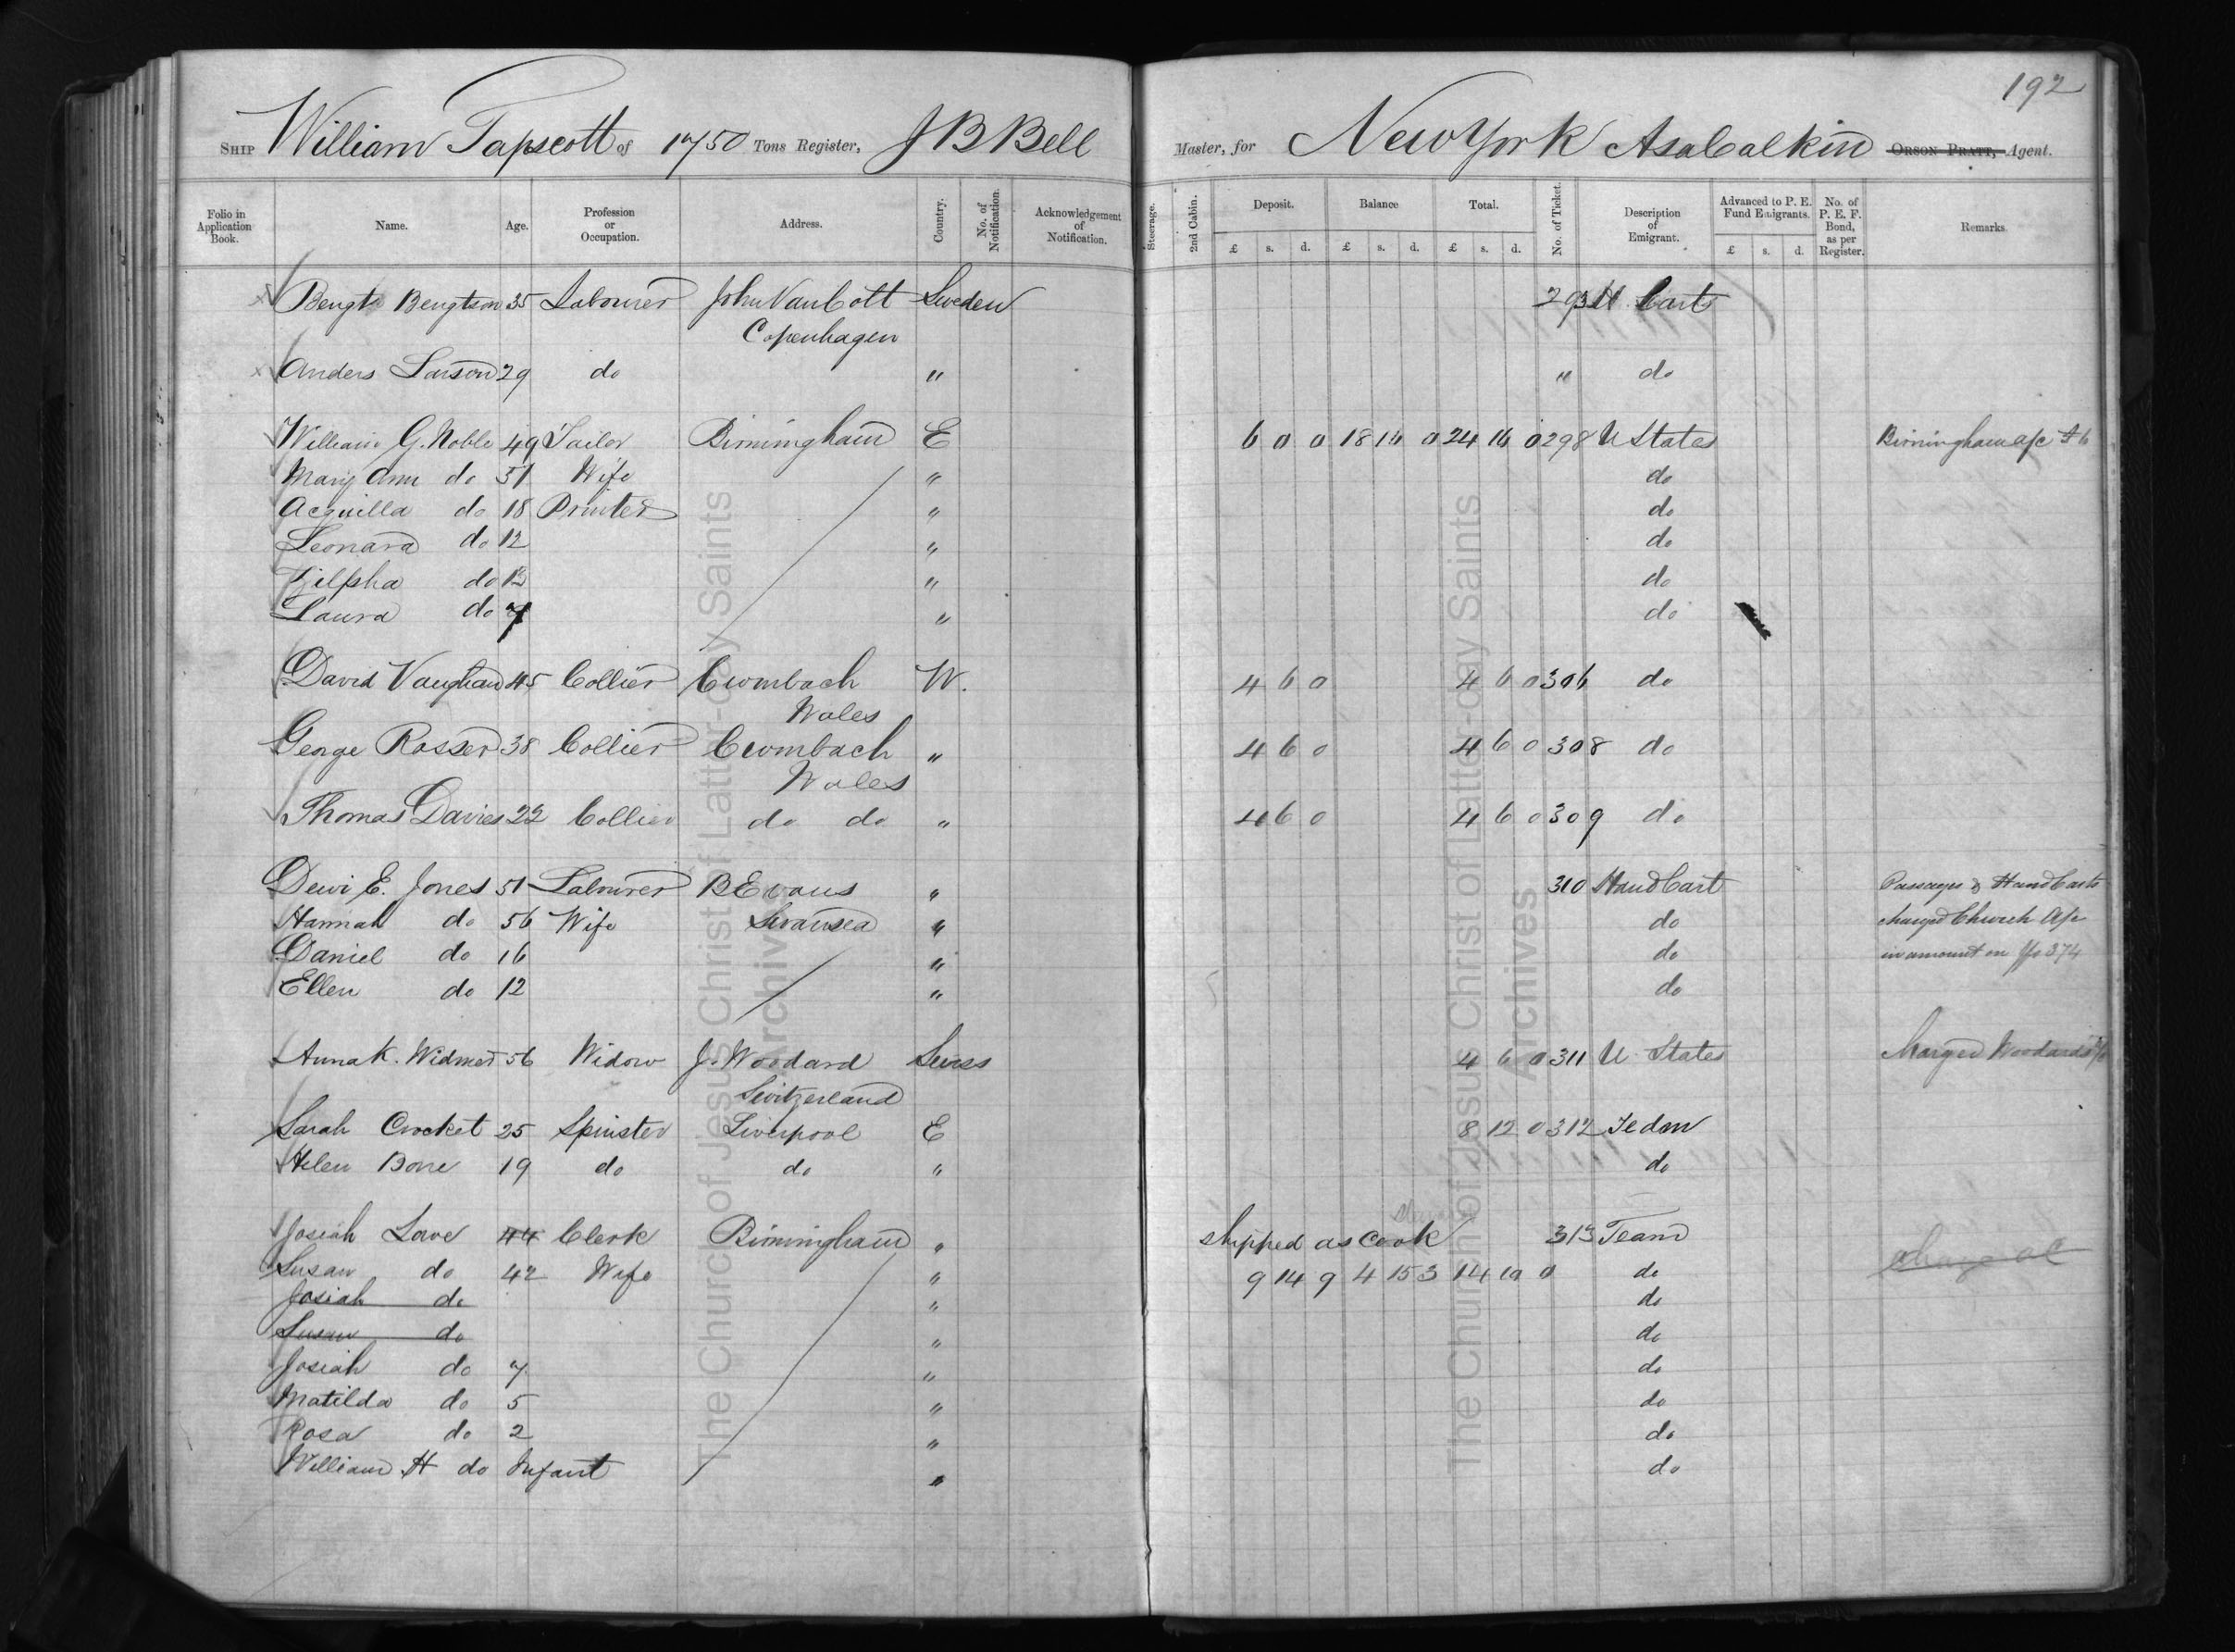 192
SHIP William Tapscott of 1750 Tons Register, J B Bell Master, for New York Asa Calkin ORSON PRATT, Agent.
Folio in Application Book. Name. Age. Profession or Occupation. Address. Country. No. of Notification. Acknowledgement of Notification. Steerage. 2nd Cabin. Deposit. Balance Total. No. of Ticket. Description of Emigrant. Advanced to P. E. Fund Emigrants. No. of P. E. F. Bond, as per Register. Remarks.
£ s. d. £ s. d. £ s. d. £ s. d.
Bengt Bengtson 35 Labourer John VanCott Sweden 293 H Cart
Copenhagen
Anders Larson 29 do " " do
William G. Noble 49 Tailor Birmingham E 6 0 0 18 16 0 24 16 0 298 U States Birmingham a/c £6
Mary Ann do 51 Wife " do
Acquilla do 18 Printer " do
Leonard do 12 " do
Zilpha do " do
Laura do 7 " do
David Vaughan 45 Collier Cwmbach W. 4 6 0 4 6 0 306 do
Wales
George Rosser 38 Collier Cwmbach " 4 6 0 4 6 0 308 do
Wales
Thomas Davies 22 Collier do do " 4 6 0 4 6 0 309 do
Dewi E. Jones 51 Labourer B Evans " 310 Hand Cart Passages & Hand Carts
Hannah do 56 Wife Swansea " do charged Church A/c
Daniel do 16 " do in amount on fo 374
Ellen do 12 " do
Anna K. Widmer 56 Widow J. Woodard Swiss 4 6 0 311 U. States Charged Woodards a/c
Switzerland
Sarah Crocket 25 Spinster Liverpool E 8 12 0 312 Tedon
Helen Bone 19 do do " do
Josiah Love 44 Clerk Birmingham " shipped as cook 313 Team
Susan do 42 Wife " 9 14 9 4 15 3 14 10 0 do
Josiah do " do
Susan do " do
Josiah do 7 " do
Matilda do 5 " do
Rosa do 2 " do
William H do Infant " do
The Church of Jesus Christ of Latter-day Saints
Archives
The Church of Jesus Christ of Latter-day Saints
Archives